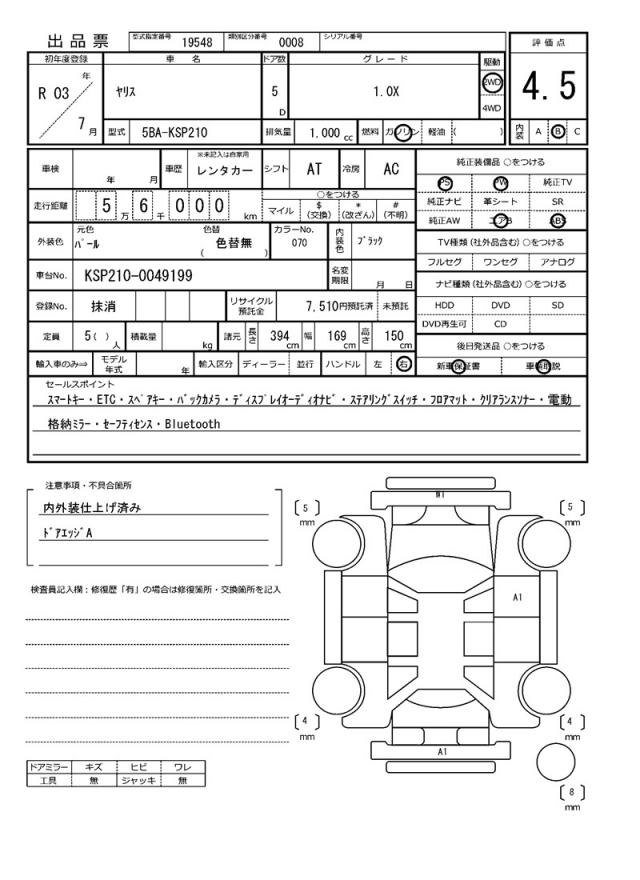 出品票 型式指定番号 19548 類別区分番号 0008 シリアル番号
初年度登録 車名 ドア数 グレード 駆動 評価点
R 03 年 7 月 ヤリス 5 D 1.0X 2WD 4WD 4.5
型式 5BA-KSP210 排気量 1,000 cc 燃料 ガソリン 軽油 ( ) 内装 A B C
車検 年 月 車歴 ※未記入は自家用 レンタカー シフト AT 冷房 AC 純正装備品 ○をつける
PS PW 純正TV
走行距離 5 万 6 千 0 0 0 km ○をつける 純正ナビ 革シート SR
マイル $ (交換) * (改ざん) # (不明) 純正AW エアB ABS
外装色 元色 パール 色替 色替無 ( ) カラーNo. 070 内装色 ブラック TV種類 (社外品含む) ○をつける
フルセグ ワンセグ アナログ
車台No. KSP210-0049199 名変期限 月 日 ナビ種類 (社外品含む) ○をつける
登録No. 抹消 リサイクル預託金 7,510円預託済 未預託 HDD DVD SD
DVD再生可 CD
定員 5( ) 人 積載量 kg 諸元 長さ 394 cm 幅 169 cm 高さ 150 cm 後日発送品 ○をつける
輸入車のみ⇒ モデル年式 年 輸入区分 ディーラー 並行 ハンドル 左 右 新車保証書 車輌取説
セールスポイント
スマートキー・ETC・スペアキー・バックカメラ・ディスプレイオーディオナビ・ステアリングスイッチ・フロアマット・クリアランスソナー・電動
格納ミラー・セーフティセンス・Bluetooth
注意事項・不具合箇所
内外装仕上げ済み
ドアエッジA
検査員記入欄：修復歴「有」の場合は修復箇所・交換箇所を記入
W1
5 mm
5 mm
A1
4 mm
4 mm
A1
8 mm
ドアミラー キズ ヒビ ワレ
工具 無 ジャッキ 無